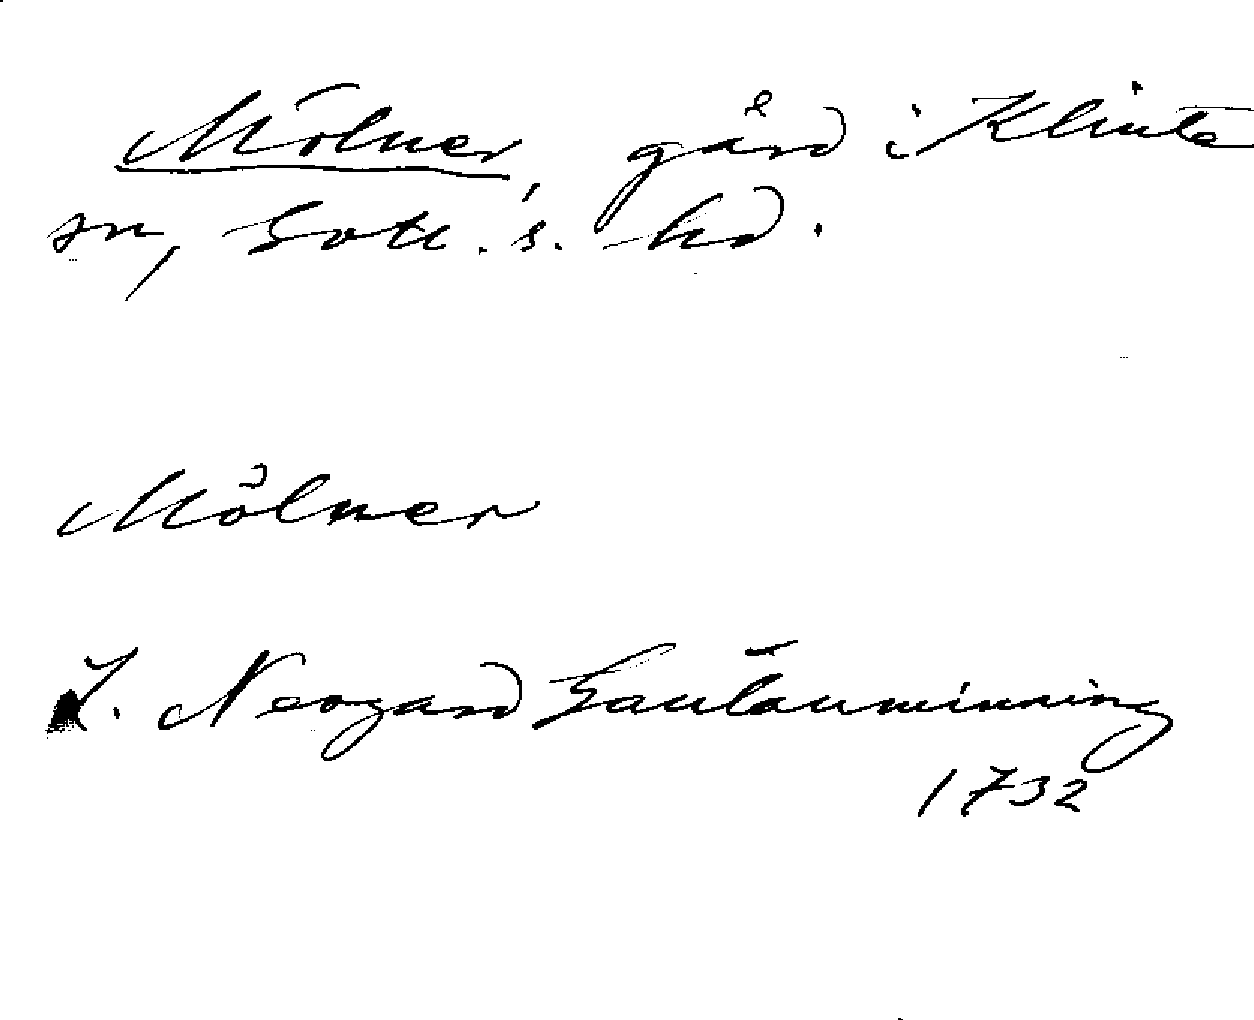 Mölner, gård i Klinte
sn, Gotl. s. hd.
Mölner
J. Neogard Gautauminning
1732